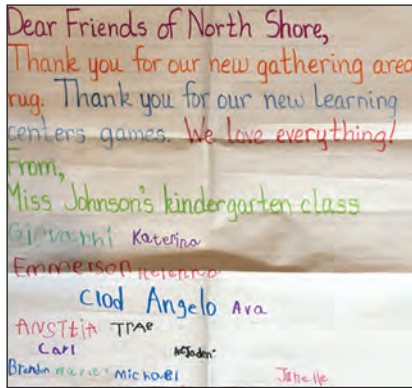 Dear Friends of North Shore,
Thank you for our new gathering area
rug. Thank you for our new Learning
centers games. We love everything!
From,
Miss Johnson's kindergarten class
Giovanni Katerina
Emmerson
Clod Angelo Ava
Carl
Brandon Michael Janelle